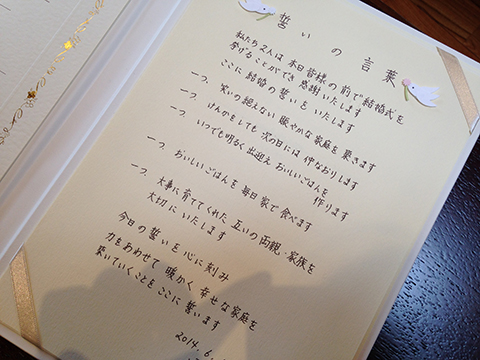 誓いの言葉
私たち2人は 本日 皆様の前で結婚式を
挙げることができ 感謝いたします
ここに 結婚の誓いを いたします
一つ、笑いの絶えない 賑やかな家庭を 築きます
一つ、けんかをしても 次の日には 仲なおりします
一つ、いつでも明るく 出迎え おいしいごはんを
作ります
一つ、おいしいごはんを 毎日 家で 食べます
一つ、大事に育ててくれた 互いの両親・家族を
大切に いたします
今日の 誓いを 心に刻み
力をあわせて 暖かく 幸せな家庭を
築いていくことを ここに 誓います
2014.6.